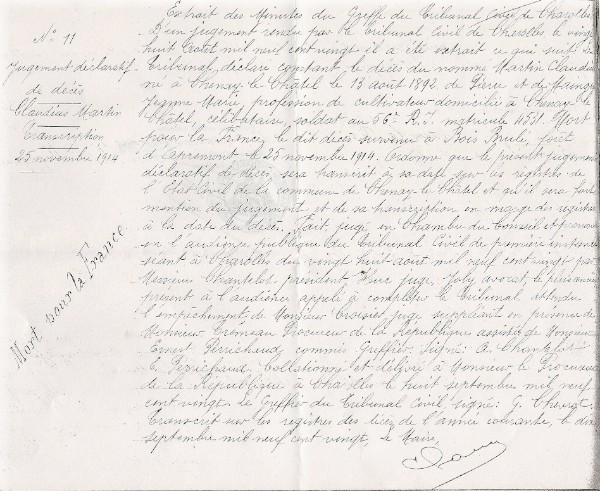 N° 11
Jugement déclaratif
de décès
Claudius Martin
Transcription
25 novembre 1914
Mort pour la France
Extrait des Minutes du Greffe du Tribunal Civil de Charolles
D'un jugement rendu par le Tribunal Civil de Charolles le vingt
huit mil neuf cent vingt il a été extrait ce qui suit Le
Tribunal, déclare constant le décès du nommé Martin Claudius
né à Chenay le Châtel le 13 août 1892, de Pierre et de
Jeanne Marie, profession de cultivateur domicilié à Chenay le
Châtel, célibataire, soldat au 56e R.I. matricule 4531. Mort
pour la France, le dit décès survenu à Bois Brulé, forêt
d'Apremont le 25 novembre 1914. Ordonne que le présent jugement
déclaratif de décès, sera transcrit à sa date sur les registres de
l'Etat Civil de la commune de Chenay le Châtel et qu'il sera fait
mention du jugement et de sa transcription en marge des registres
à la date du décès. Fait jugé en Chambre du Conseil et prononcé
en l'audience publique du Tribunal Civil de première instance
séant à Charolles du vingt huit août mil neuf cent vingt par
Messieurs Chantelot président, Huc juge, Joly avocat, le
présent à l'audience appelé à compléter le Tribunal attendu
l'empêchement de Monsieur Croisier juge suppléant en présence de
Monsieur Crémeau Procureur de la République assistés de Monsieur
Perrichaud, commis Greffier. Signé: A. Chantelot
E. Perrichaud. Collationné et délivré à Monsieur le Procureur
de la République à Charolles le huit septembre mil neuf
cent vingt. Le Greffier du Tribunal Civil signé: G.
Transcrit sur les registres des décès de l'année courante, le dix
septembre mil neuf cent vingt, Le Maire,